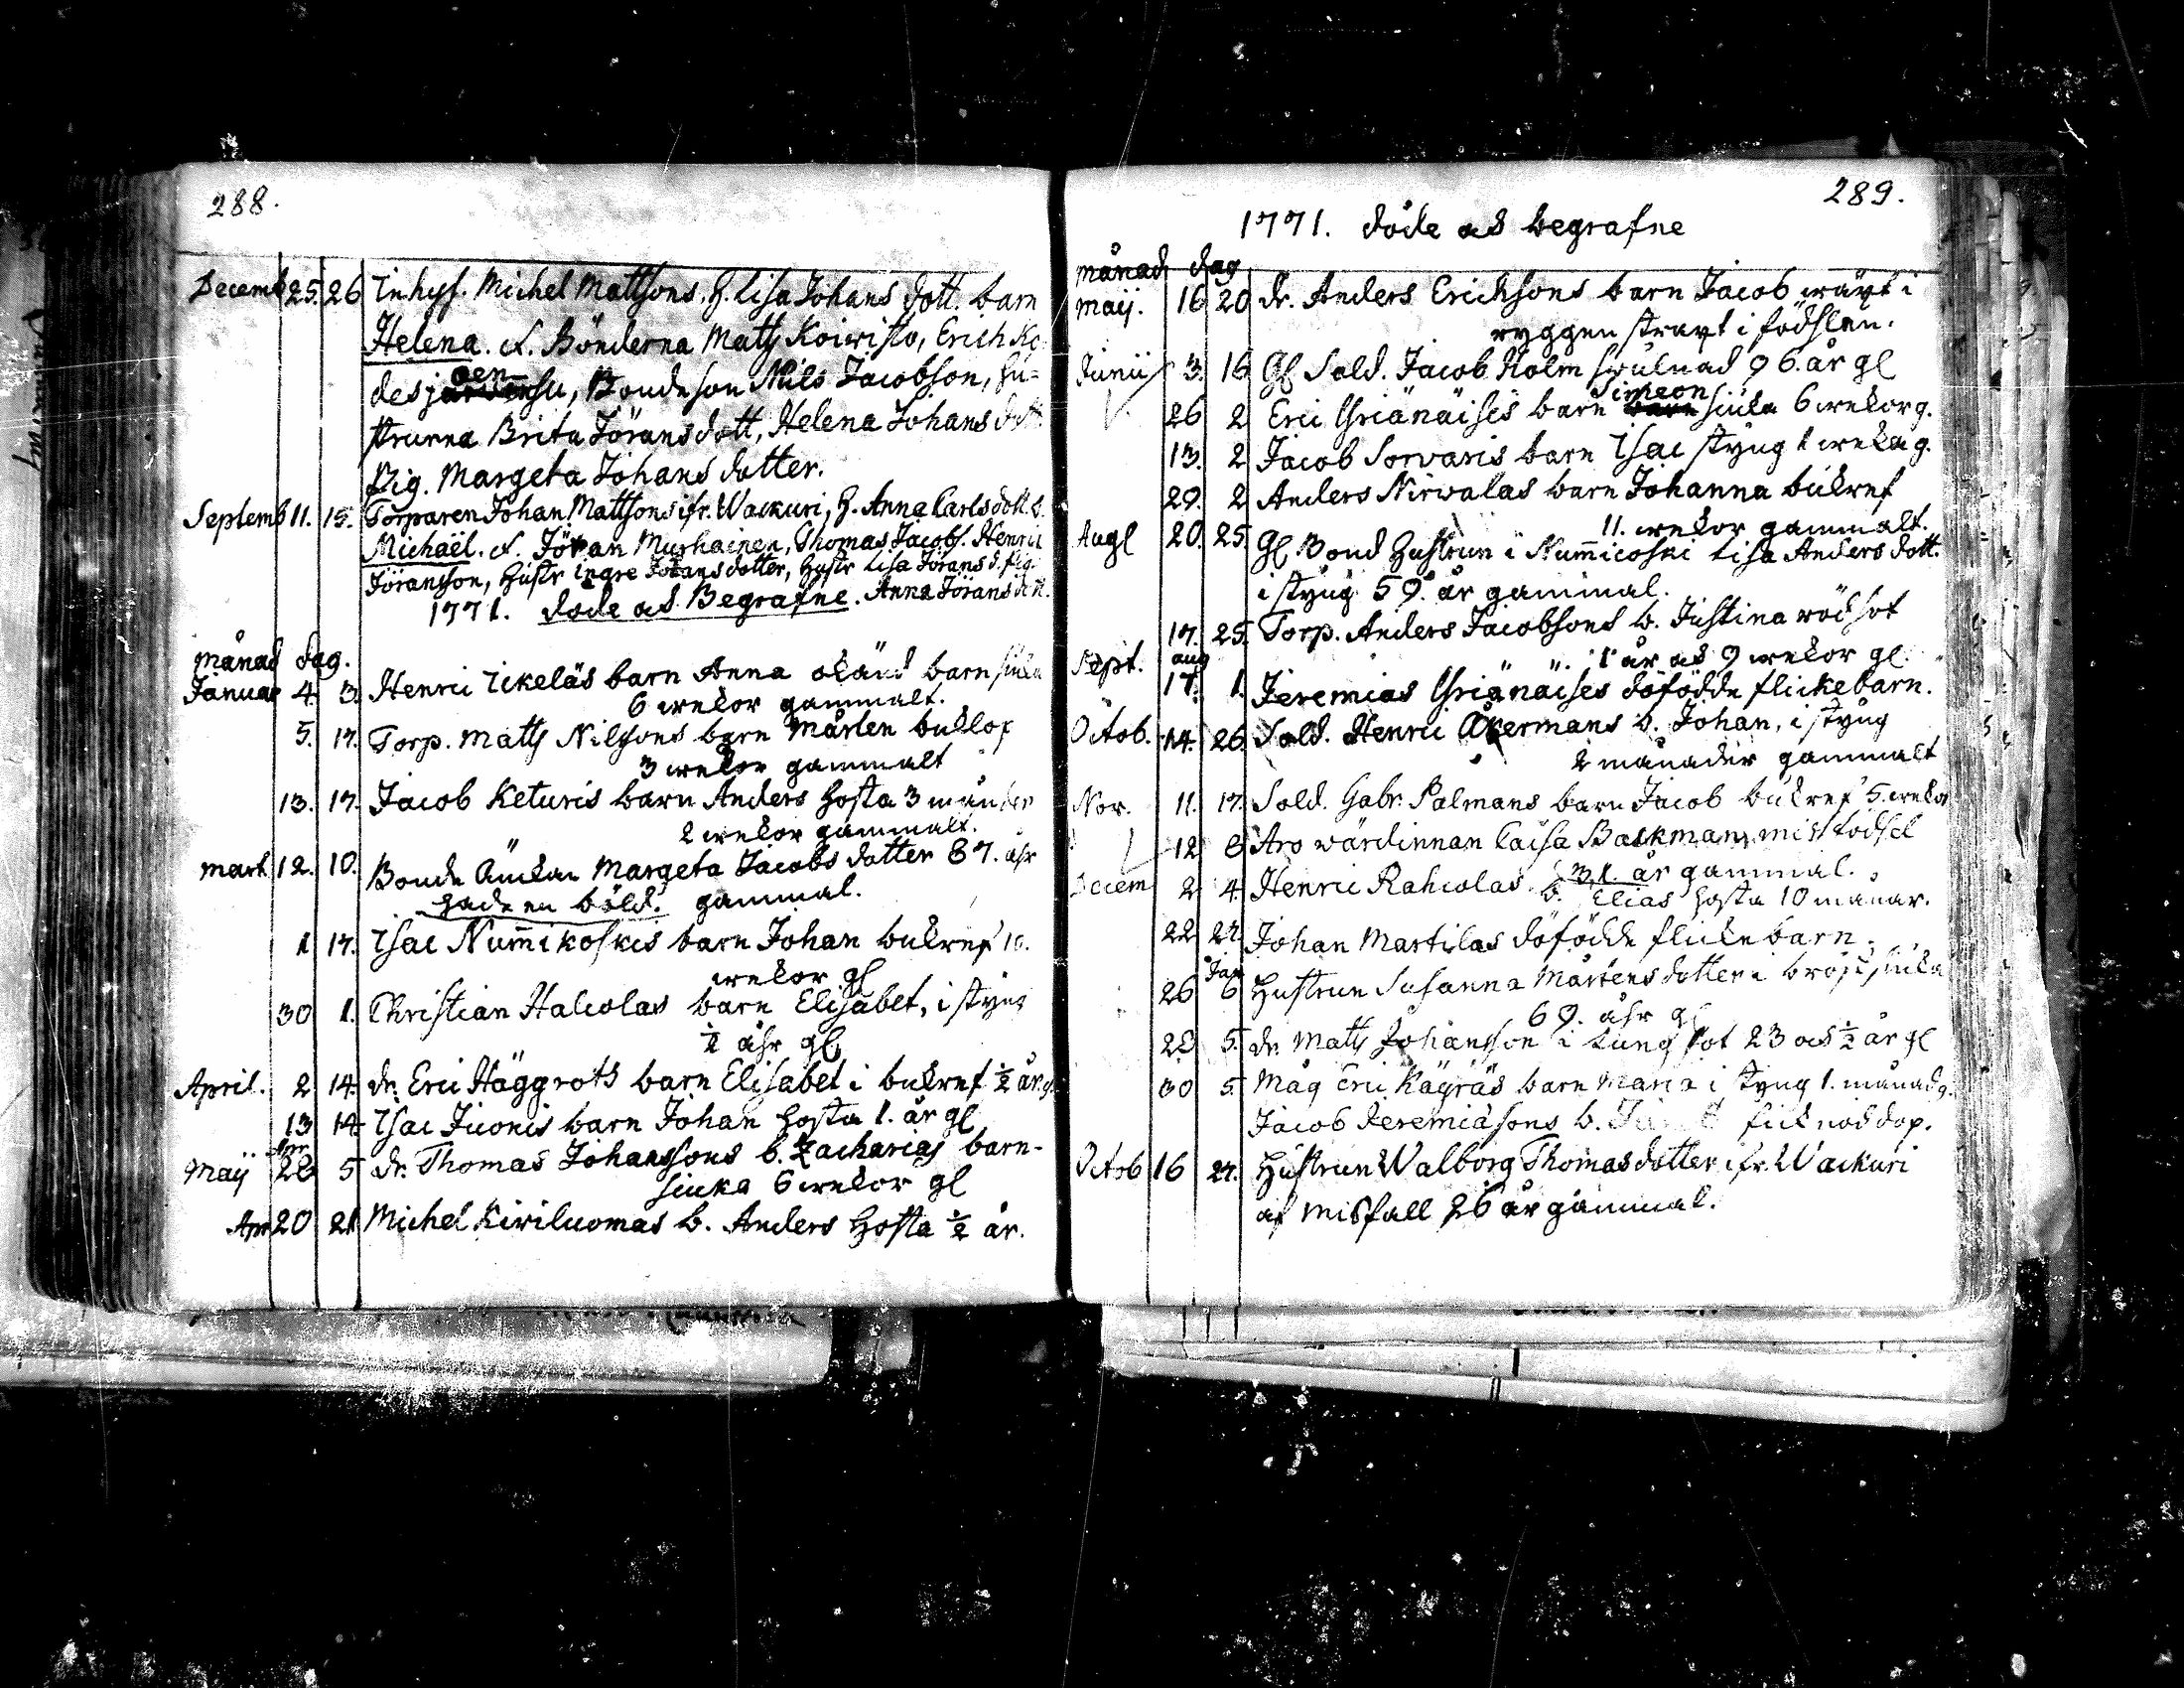 288.
Decemb 25. 26 Inhys. Michel Mattsons, H. Lisa Johans dott. barn
Helena. N. Bönderna Matts Koiwisto, Erich Ko
desjoen, Bondeson Nils Jacobson, Hu-
struna Brita Jörans dott, Helena Johans dott
Pig. Margeta Johans dotter.
Septemb 11. 15. Torparen Johan Mattsons ifr. Wackuri, H. Anna Carls dott. b.
Michaël. N. Jöran Murhainen, Thomas Jacobs. Henric
Jöransson, Hustr Ingre Jörans dotter, Hustr Lisa Jörans d. Pig.
Anna Jörans dott.
1771. döde och Begrafne.
månad dag.
Januar 4. 3. Henric Ikeläs barn Anna okänd barnsiuka
6 wekor gammalt.
5. 17. Torp. Matts Nilssons barn Mårten buklop
3 wekor gammalt
13. 17. Jacob Keturis barn Anders hosta 3 månader
2 wekor gammalt.
mart 12. 10. Bonde Änckan Margeta Jacobs dotter 87. åhr
hade en böld. gammal.
1 17. Isac Num̄ikoskis barn Johan bukref 10.
wekor gl
30 1. Christian Halcolas barn Elisabet, i styng
½ åhr gl
April. 2 14. dr. Eric Häggrots barn Elisabet i bukref ½ år. g.
13 14 Isac Juonis barn Johan hosta 1. år gl
Maij Apr 28 5 dr. Thomas Johanssons b. Zacharias barn-
siuka 6 wekor gl
Apr 20 21 Michel Kiviluomas b. Anders hosta ½ år.
289.
1771. döde och begrafne
månad dag
Maij. 16 20 dr. Anders Ericksons barn Jacob wärkt i
ryggen strart i födslen.
Junii 3. 16 Gl Sold. Jacob Holm swulnad 96. år gl
26 2 Eric Yrjänäises barn Simeon siuka 6 wekor g.
13. 2 Jacob Sorvaris barn Isac styng 1 weka g.
29. 2 Anders Nirwalas barn Johanna bukref
11. wekor gammalt.
Augl 20. 25 Gl Bond Hustrun i Num̄icoski Lisa Anders dott.
i styng 59. år gammal.
17. 25. Torp. Anders Jacobsons b. Justina rödsot
1 år och 9 wekor gl.
Sept. aug 17. 1. Jeremias Yrjänäises döfödde flickebarn.
Octob. 14. 26 Sold. Henric Åkermans b. Johan, i styng
2 månader gammalt
Nov. 11. 17. Sold. Gabr. Palmans barn Jacob bukref 5. wekor
12 8 Aro wärdinnan Caisa Backman, missfödsel
31. år gammal.
Decem 2 4. Henric Rahcolas b. Elias hosta 10 månar.
22 27. Johan Martilas döfödde flickebarn.
26 Jan 6 Hustrun Susanna Mårtens dotter i bröstsiuka
69. åhr gl
28 5. dr. Matts Johansson i lungsot 23 och ½ år gl
30 5. Måg Eric Kägräs barn Maria i styng 1. månad g.
Jacob Jeremiasons b. fick nöddop.
Octob 16 27. Hustrun Walborg Thomas dotter ifr. Wackuri
af misfall 26 år gammal.